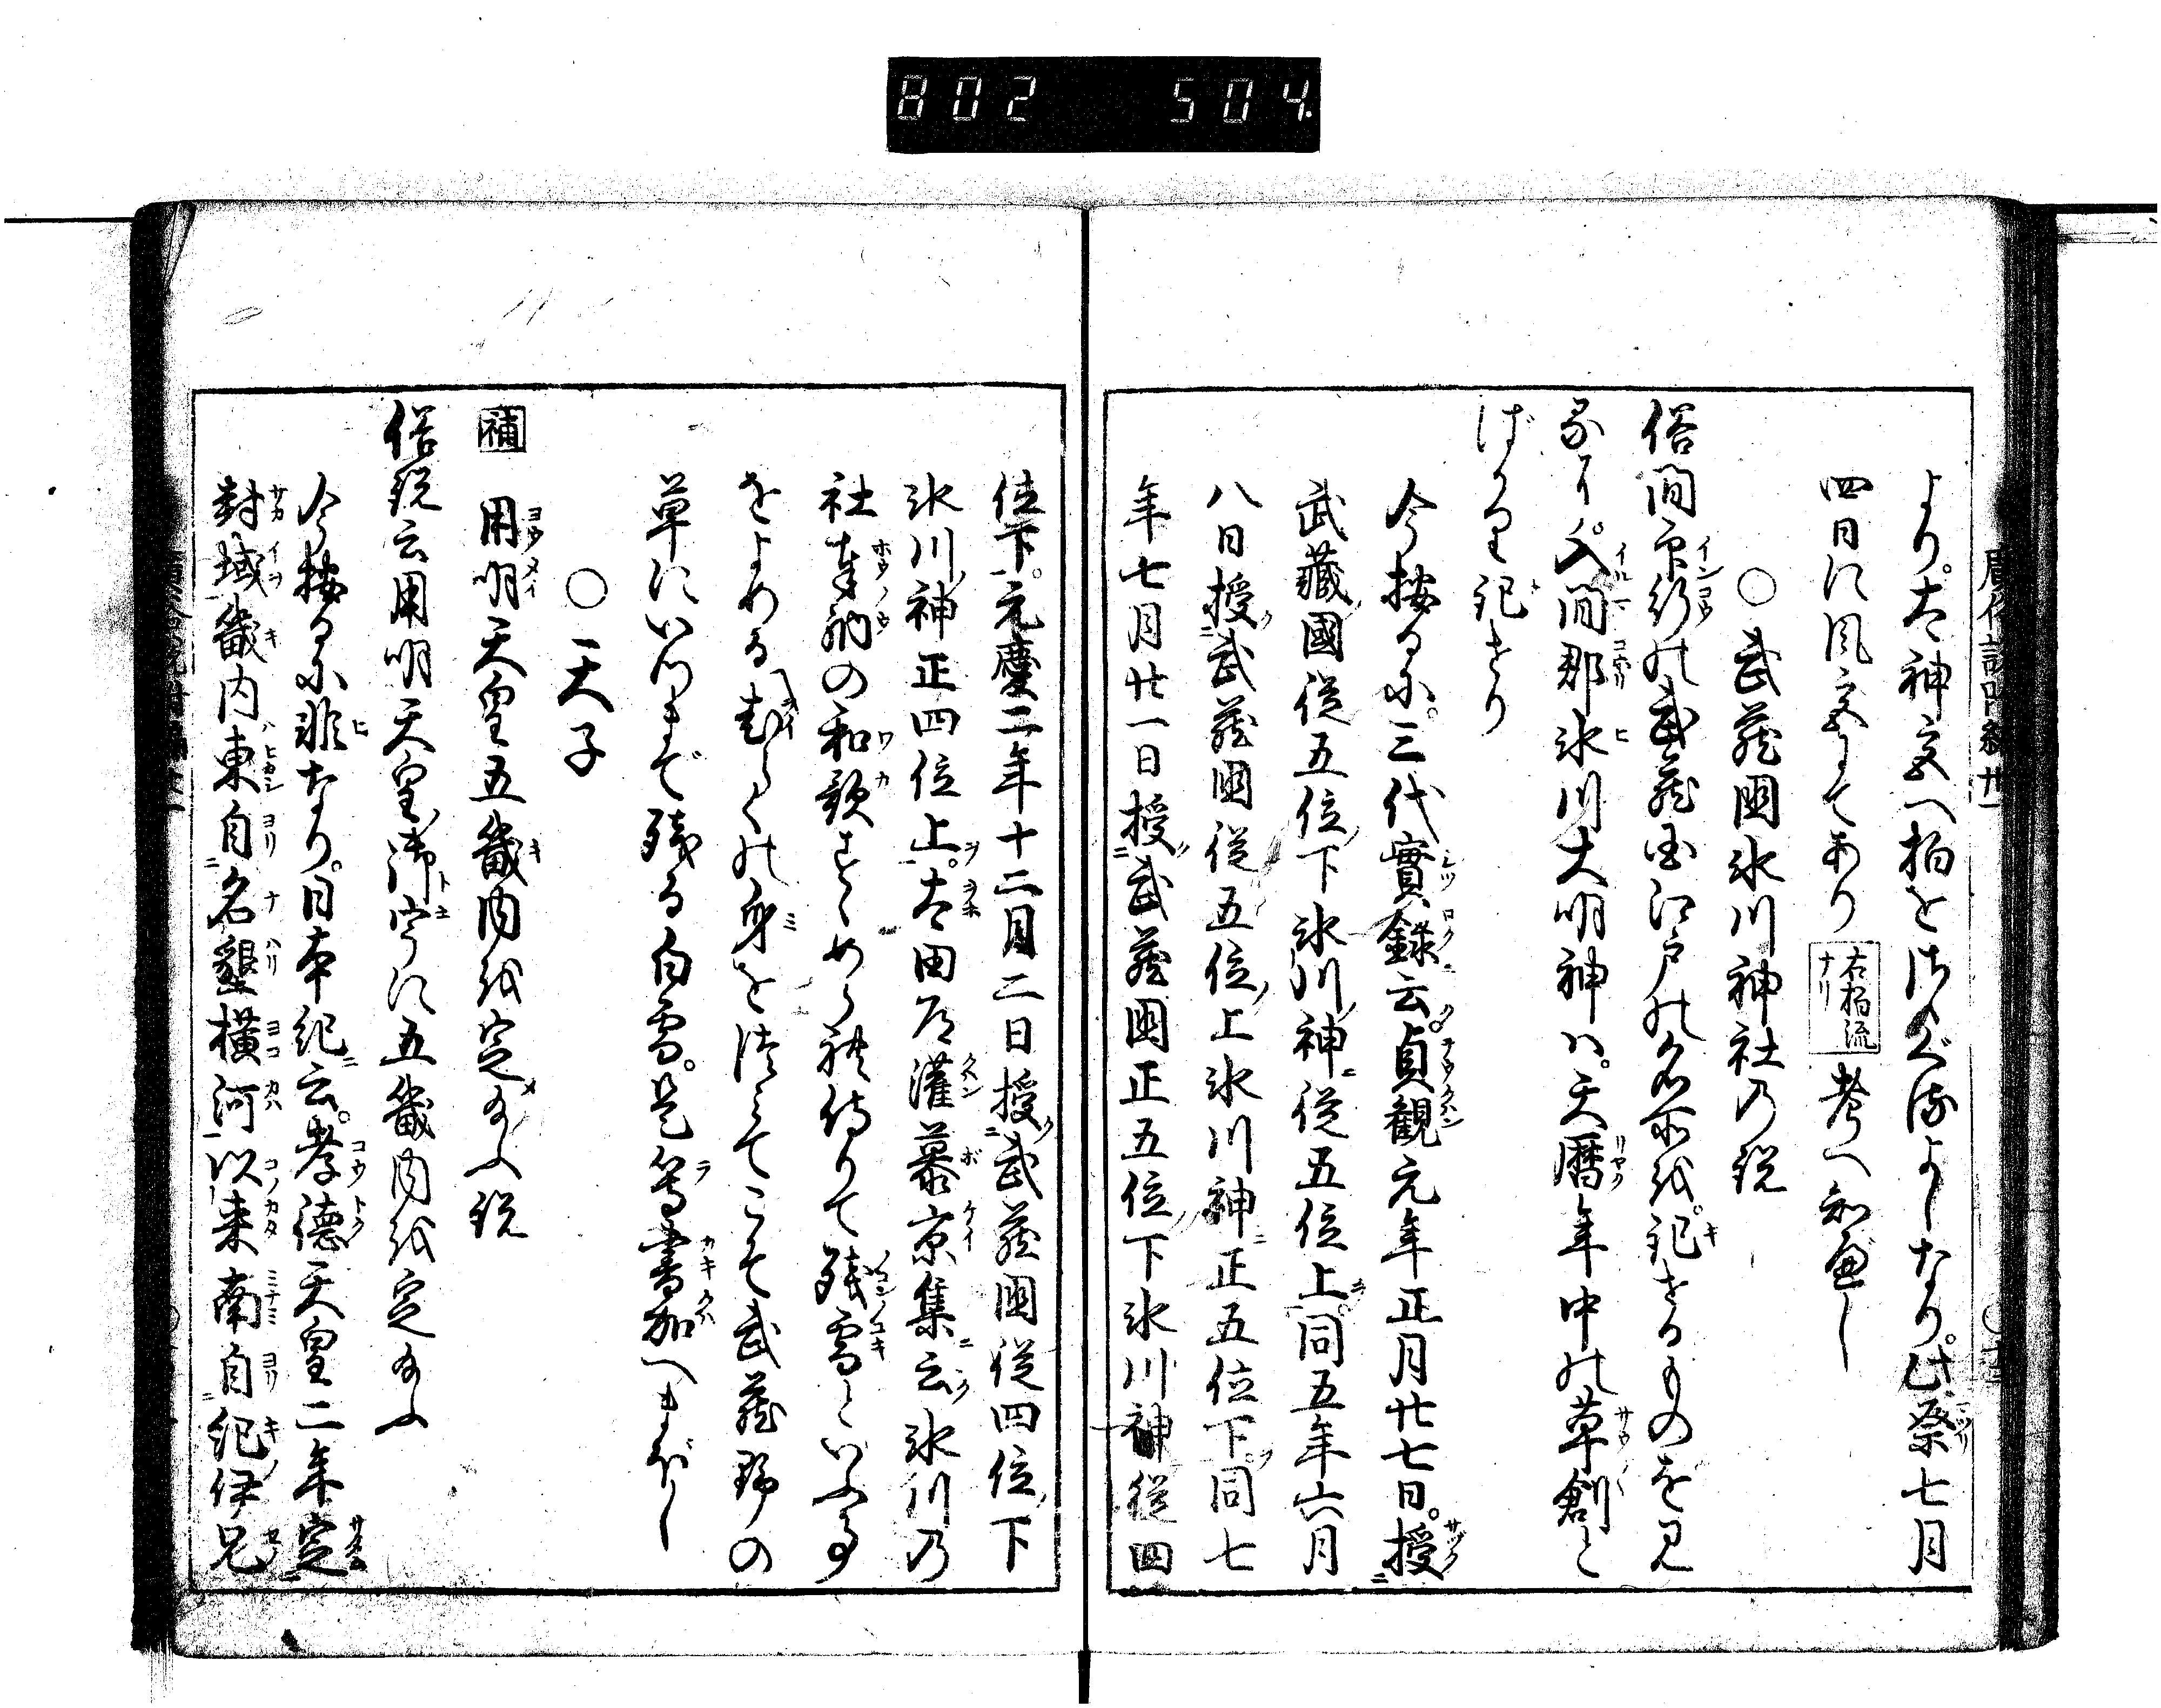 802 504.
廣益俗説弁 卅一
より。大神宮へ柏をはくぐるよしなり。此祭七月
四日に風宮にてあり 右柏流ナリ 考へ知べし
○武蔵国氷川神社の説
俗間印行の武蔵国江戸の名所を記せるものを見
るに。入間郡氷川大明神ハ。天暦年中の草創と
ばかり記せり
今按るに。三代實録云。貞観元年正月廿七日。授
武藏國従五位下氷川神従五位上。同五年六月
八日授武蔵国従五位上氷川神正五位下。同七
年七月廿一日授武蔵国正五位下氷川神従四
位下。元慶二年十二月二日授武蔵国従四位下
氷川神正四位上。太田道灌慕京集云氷川の
社奉納の和歌をすゝめられ侍りて残雪といふ事
をよめる老らくの身をつみてこそ武蔵野の
草にいつまで残る白雪。是等書加へまほし
○天子
補 用明天皇五畿内を定め給ふ説
俗説云用明天皇御宇に五畿内を定給ふ
今按るに非なり。日本紀云。孝徳天皇二年定
封域畿内東自名墾横河以来南自紀伊兄